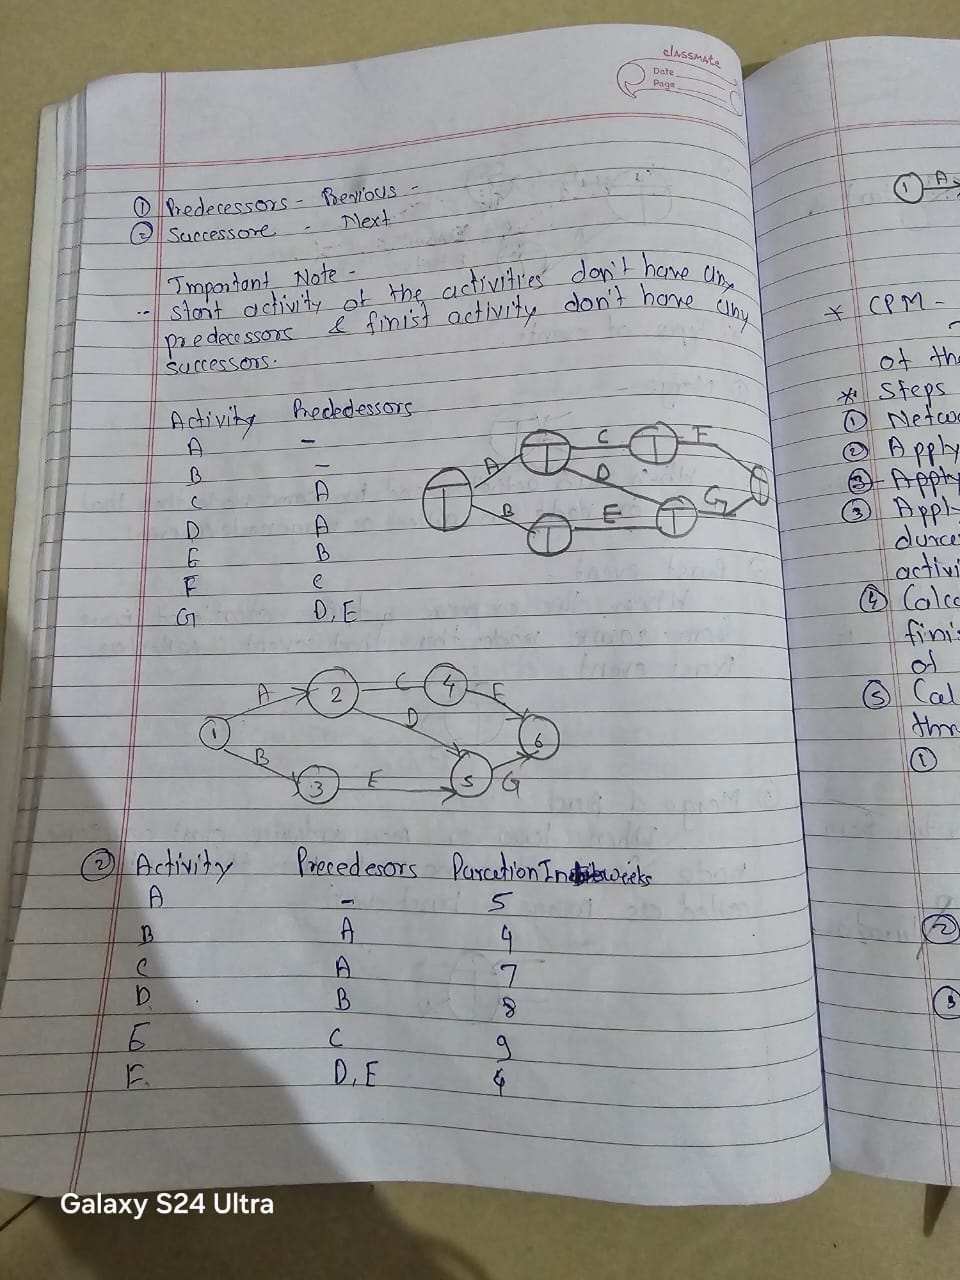 classmate
Date
Page
① Predecessors - Previous -
② Successore - Next
Important Note -
start activity of the activities don't have any
predecessors & finist activity don't have any
successors.
Activity Prededessors
A -
B -
C A
D A
E B
F C
G D, E
A C F
B D E G
A 2 C 4 F
1 D 6
B 3 E 5 G
② Activity Precedesors Durcation In weeks
A - 5
B A 4
C A 7
D B 8
E C 9
F. D, E
① A
* CPM -
of the
* Steps
① Netwo
② Apply
③ Apply
③ Appl
activi
④ Calc
fini
of
⑤ Cal
thr
①
②
③
Galaxy S24 Ultra